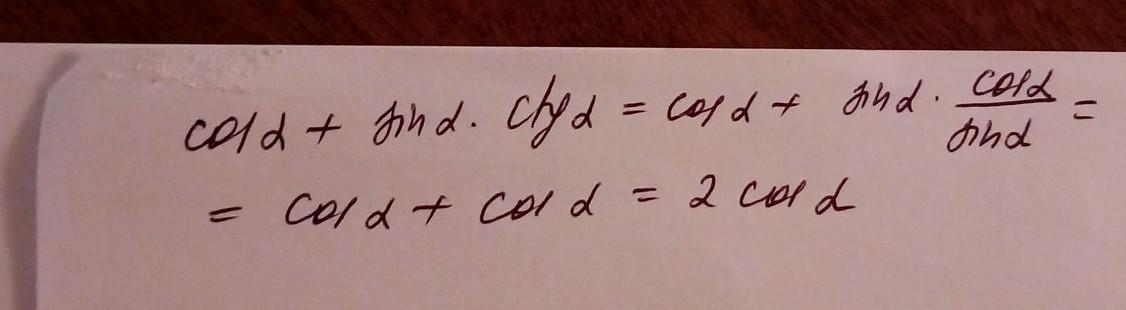 cos α + sin α · ctg α = cos α + sin α · cos α / sin α =
= cos α + cos α = 2 cos α